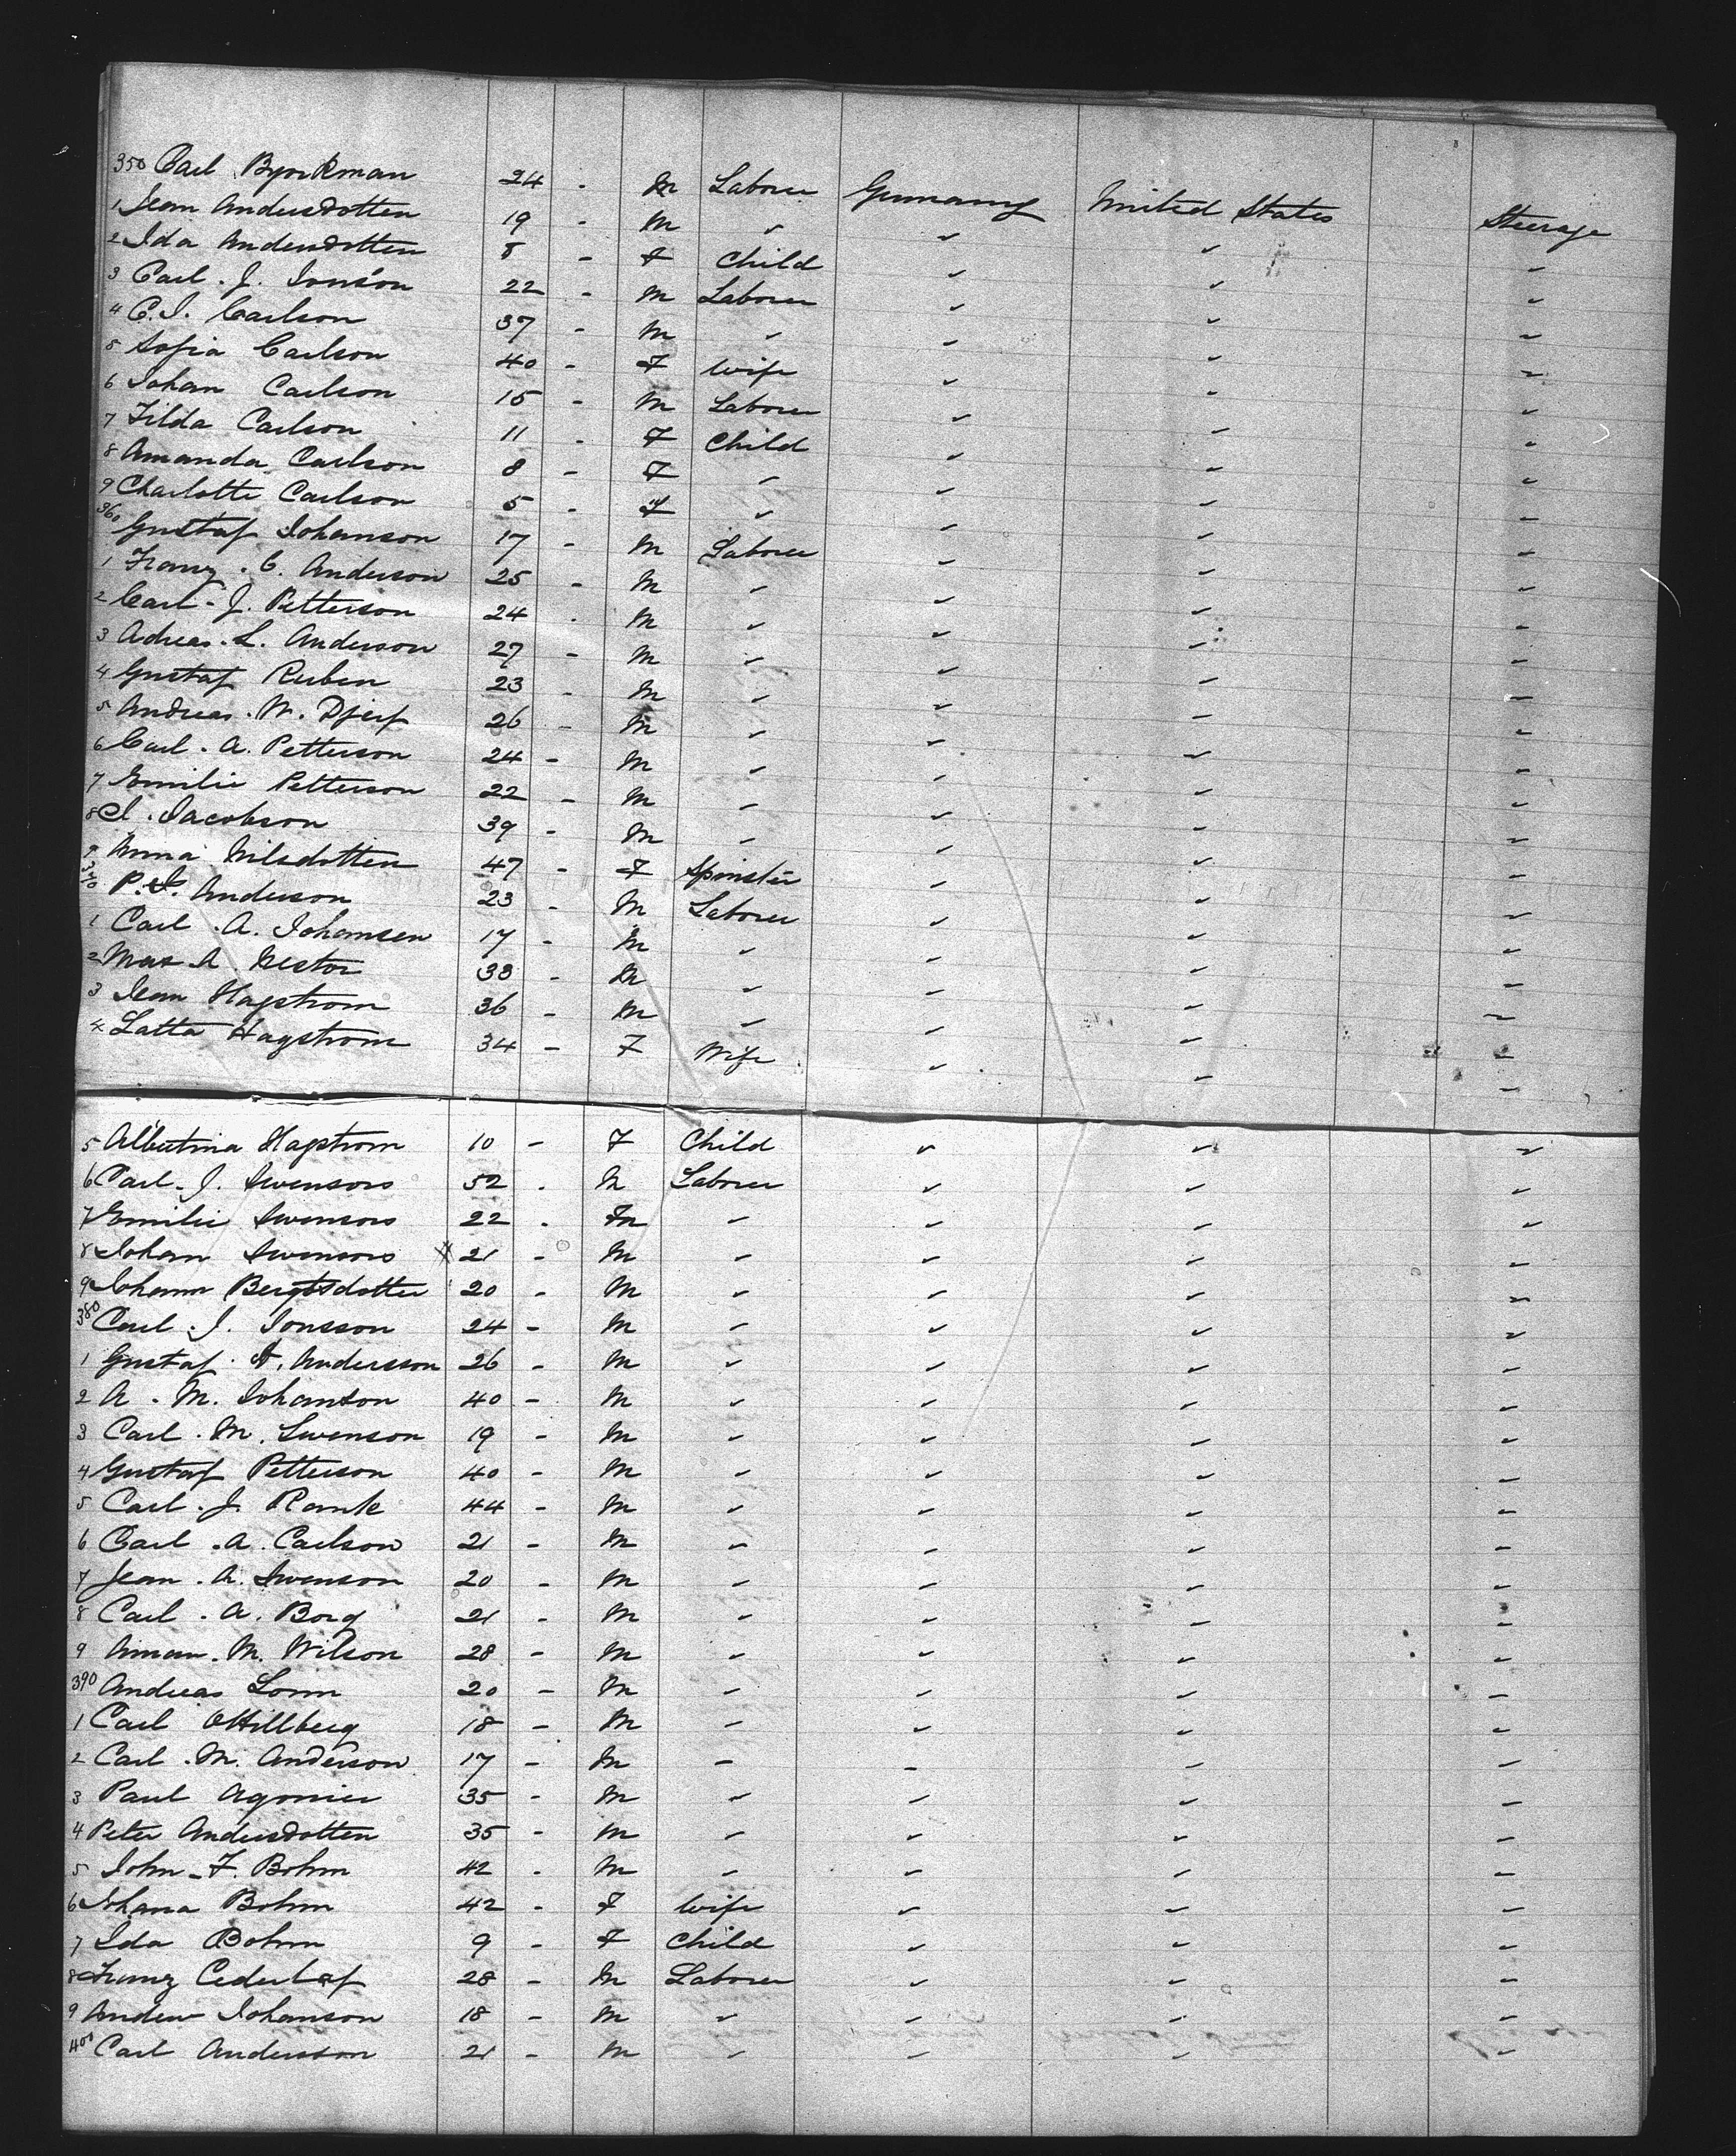 350 Carl Byorkman 24 - M Laborer Germany United States Steerage
1 Jean Andersdotten 19 - M " " " "
2 Ida Andersdotten 8 - F Child " " "
3 Carl . J. Jonson 22 - M Laborer " " "
4 C. J. Carlson 37 - M " " " "
5 Sofia Carlson 40 - F Wife " " "
6 Johan Carlson 15 - M Laborer " " "
7 Tilda Carlson 11 - F Child " " "
8 Amanda Carlson 8 - F " " " "
9 Charlotte Carlson 5 - F " " " "
360 Gustaf Johanson 17 - M Laborer " " "
1 Franz . C. Anderson 25 - M " " " "
2 Carl - J. Petterson 24 . M " " " "
3 Adreas . L. Anderson 27 - M " " " "
4 Gustaf Ruben 23 - M " " " "
5 Andreas . W. Djerf 26 - M " " " "
6 Carl . A. Petterson 24 - M " " " "
7 Emilie Petterson 22 - M " " " "
8 J. Jacobson 39 - M " " " "
9 Anna Nilsdotten 47 - F Spinster " " "
370 P. J. Anderson 23 - M Laborer " " "
1 Carl . A. Johansen 17 - M " " " "
2 A. Nestor 33 - M " " " "
3 Jean Hagstrom 36 - M " " " "
4 Latta Hagstrom 34 - F Wife " " "
5 Albertina Hagstrom 10 - F Child " " "
6 Carl . J. Swensors 52 . M Laborer " " "
7 Emilie Swensors 22 . " " " "
8 Johan Swensors X 21 - M " " " "
9 Johann Bergtsdotter 20 - M " " " "
380 Carl . J. Jonsson 24 - M " " " "
1 Gustaf . A. Andersson 26 - M " " " "
2 A . M. Johanson 40 - M " " " "
3 Carl . M. Swenson 19 - M " " " "
4 Gustaf Petterson 40 - M " " " "
5 Carl . J. Rank 44 - M " " " "
6 Carl . A. Carlson 21 - M " " " "
7 Jean . A. Swenson 20 - M " " " "
8 Carl . A. Borg 21 - M " " " "
9 M. Wilson 28 - M " " " "
390 Andreas Lonn 20 - M " " " "
1 Carl Ottillberg 18 - M " " " "
2 Carl . M. Anderson 17 - M " " " "
3 Paul Agonier 35 - M " " " "
4 Peter Andersdotten 35 - M " " " "
5 John . F. Bohm 42 - M " " " "
6 Johana Bohm 42 - F Wife " " "
7 Ida Bohm 9 - F Child " " "
8 Franz Cederlof 28 - M Laborer " " "
9 Andrew Johanson 18 - M " " " "
400 Carl Andersson 21 - M " " " "